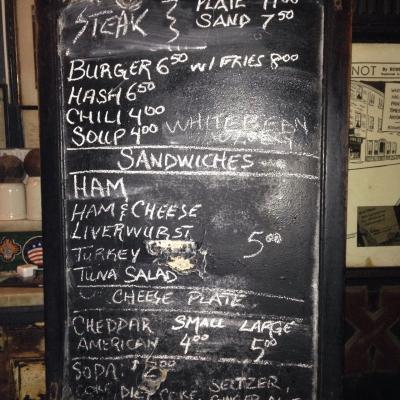 STEAK PLATE 11.00
SAND 7 50
BURGER 6 50 W/ FRIES 8 00
HASH 6 50
CHILI 4 00
SOUP 4 00 WHITE BEAN
SANDWICHES
HAM
HAM & CHEESE
LIVERWURST
TURKEY
TUNA SALAD
5 00
CHEESE PLATE
SMALL LARGE
CHEDDAR
AMERICAN 4 00 5 00
SODA
COKE, DIET COKE, SELTZER,
GINGER ALE
NOT